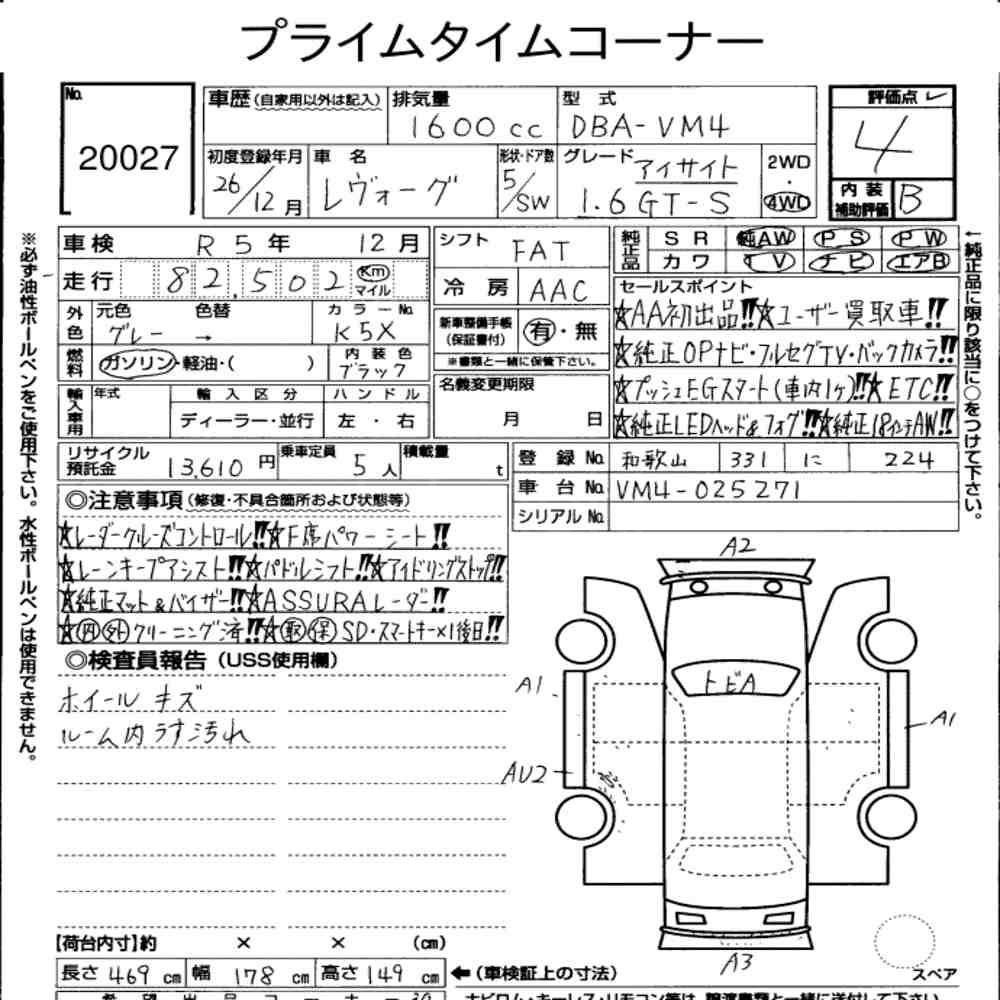 プライムタイムコーナー
No. 20027
車歴(自家用以外は記入)
排気量 1600cc
型式 DBA-VM4
評価点 4
初度登録年月 26/12月
車名 レヴォーグ
形状・ドア数 5/SW
グレード アイサイト 1.6GT-S
2WD・4WD
内装補助評価 B
※必ず油性ボールペンをご使用下さい。水性ボールペンは使用できません。
←純正品に限り該当に○をつけて下さい。
車検 R5年 12月
シフト FAT
純正品 SR 純AW PS PW
カワ TV ナビ エアB
走行 82,502 Km マイル
冷房 AAC
セールスポイント
☆AA初出品!!☆ユーザー買取車!!
☆純正OPナビ・フルセグTV・バックカメラ!!
☆プッシュEGスタート(車内1ヶ)!!☆ETC!!
☆純正LEDヘッド&フォグ!!☆純正18インチAW!!
外色 元色 グレー → 色替 カラーNo. K5X
新車整備手帳(保証書付) 有・無
※書類と一緒に保管下さい。
燃料 ガソリン・軽油・( ) 内装色 ブラック
名義変更期限 月 日
輸入車用 年式 輸入区分 ディーラー・並行 ハンドル 左・右
リサイクル預託金 13,610円 乗車定員 5人 積載量 t
登録No. 和歌山 331 に 224
車台No. VM4-025271
シリアルNo.
◎注意事項(修復・不具合箇所および状態等)
☆レーダークルーズコントロール!!☆F席パワーシート!!
☆レーンキープアシスト!!☆パドルシフト!!☆アイドリングストップ!!
☆純正マット&バイザー!!☆ASSURAレーダー!!
☆内外クリーニング済!!☆取保SD・スマートキー×1後日!!
◎検査員報告(USS使用欄)
ホイールキズ
ルーム内うす汚れ
A2
トビA
A1
A1
AU2
A3
スペア
【荷台内寸】約 × × (cm)
長さ 469cm 幅 178cm 高さ 149cm ←(車検証上の寸法)